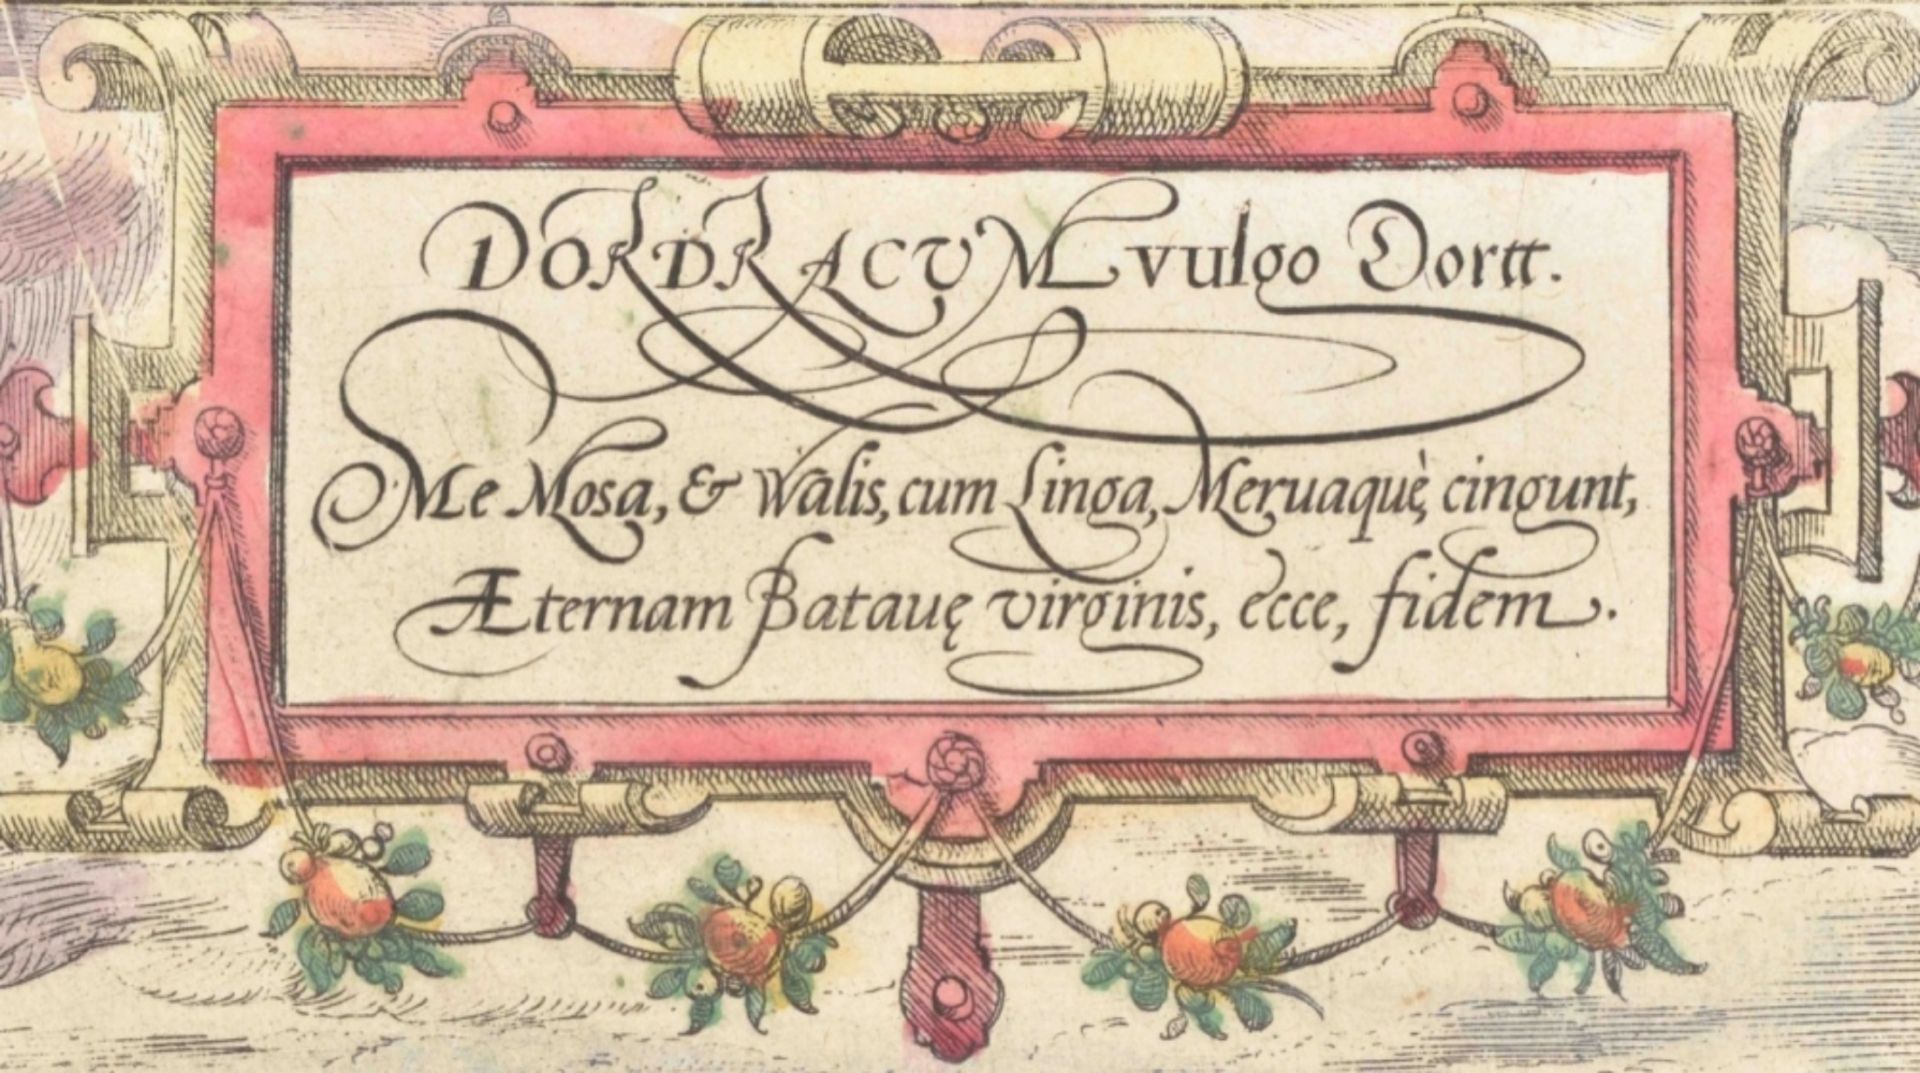 DORDRACVM vulgo Dortt.
Me Mosa, & Walis, cum Linga, Meruaquè, cingunt,
Æternam Batauę virginis, ecce, fidem.